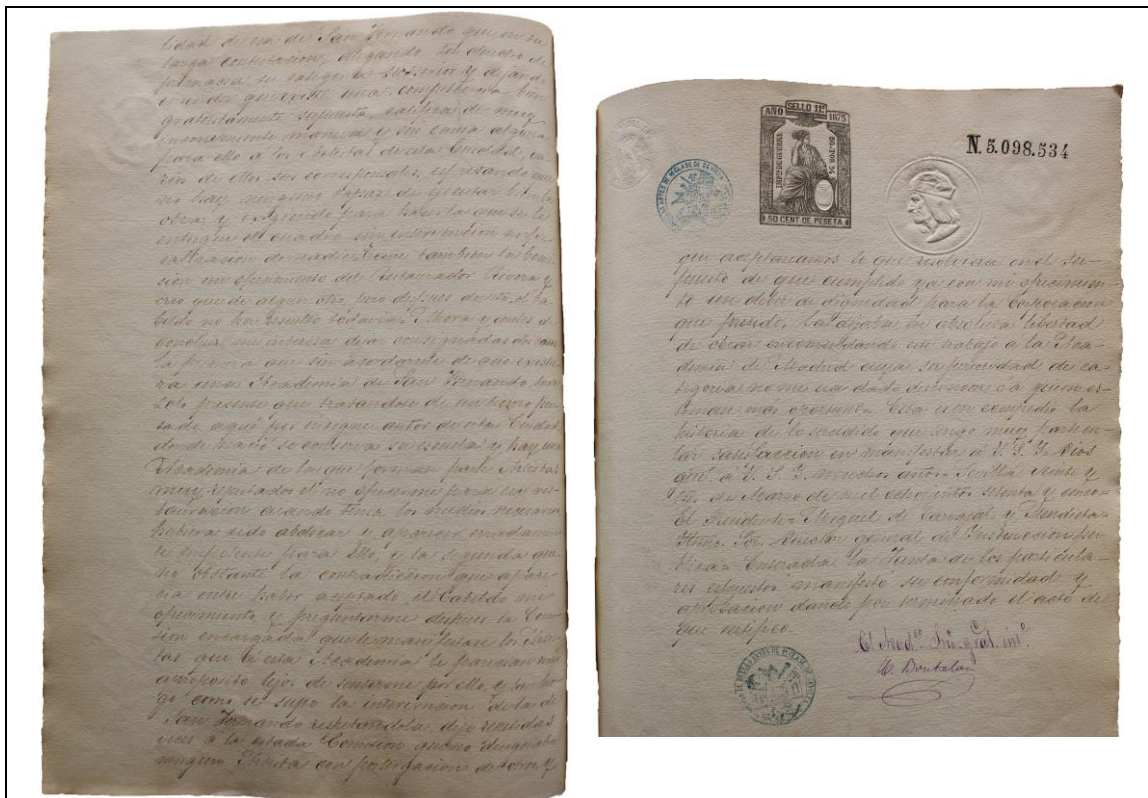 lidad de esa de San Fernando que en su
larga contestacion, alegando los deberes de
gratuitamente supuesta, califica de muy
inconveniente manera y sin causa alguna
para ello a los Artistas de esta Ciudad, va-
rios de ellos sus corresponsales, expresando que
no hay ninguno capaz de ejecutar la
obra y exigiendo para hacerla que se le
entregue el cuadro sin intervencion ni fis-
calizacion de nadie. Tiene tambien la Comi-
sion un ofrecimiento del Restaurador Rivera y
creo que de algun otro, pero despues de esto, el Ca-
bildo no ha resuelto todavia. Ahora y antes de
concluir, me interesa dejar consignadas dos cosas
la primera que sin acordarme de que existie-
ra una Academia de San Fernando tuve
solo presente que tratandose de un lienzo pin-
tado aqui por insigne autor de esta Ciudad
donde nació se conserva su escuela y hay una
Academia de la que forman parte Artistas
muy reputados el no ofrecerme para su res-
tauracion cuando tenia los medios necesarios
hubiera sido abdicar y aparecer
impotente para ello, y la segunda que
no obstante la contradiccion que apare-
cia entre haber aceptado el Cabildo mi
ofrecimiento y preguntarme despues la Comi-
sion encargada que le manifestase los Artis-
tas que á esta Academia le parecian mas
apropósito lejos de sentirme por ello y tan lue-
go como se supo la intervencion de la de
San Fernando respetandola dije repetidas
veces a la citada Comision que no designaba
ningun Artista con postergacion de otro y
AÑO SELLO 11º 1875
IMPTO DE GUERRA
50 CENT DE PESETA
N. 5.098.534
que aceptariamos lo que resolviera en el su-
puesto de que cumplido ya con mi ofrecimien-
to un deber de dignidad para la Corporacion
que presido, la dejaba en absoluta libertad
de obrar encomendando ese trabajo a la Aca-
demia de Madrid cuya superioridad de ca-
tegoria no me era dado desconocer o a quien es-
timase más oportuno. Esta es en compendio la
historia de lo sucedido que tengo muy particu-
lar satisfaccion en manifestar á V. S. Y. Dios
gue. á V. S. Y. muchos años. Sevilla veinte y
de Marzo de mil ochocientos setenta y cinco.
El Presidente. Miguel de Carvajal y Mendieta.
Yltmo. Sor. Director general de Instruccion Pu-
blica. Enterada la Junta de los particula-
res espuestos manifestó su conformidad y
aprobacion dando por terminado el acto de
que certifico.
C. Boutelou